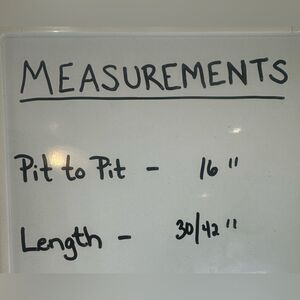 MEASUREMENTS
Pit to Pit - 16"
Length - 30/42"